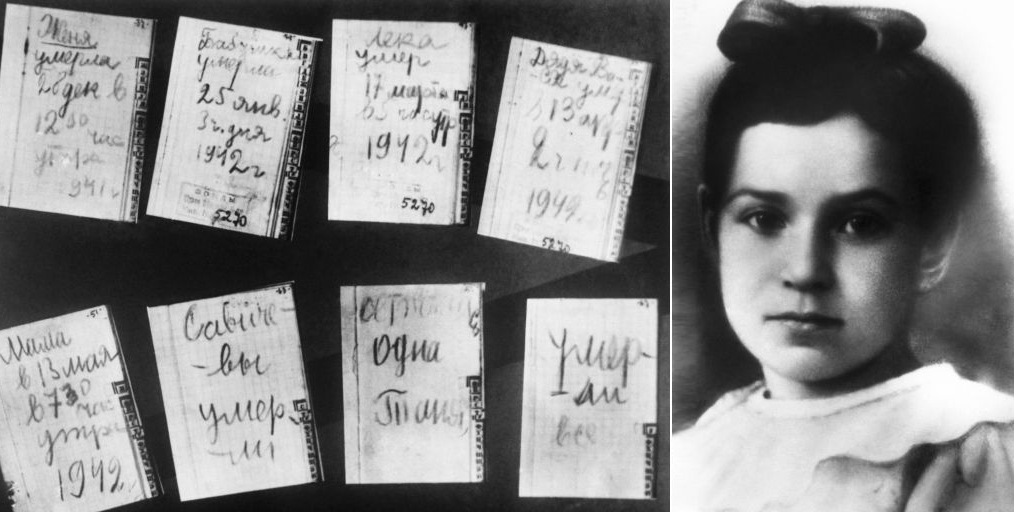 Женя
умерла
28 дек в
12 30
час
утра
1941 г
Бабушка
умерла
25 янв.
3 ч. дня
1942 г
5270
Лека
умер
17 марта
в 5 час утр
1942 г
5270
Дядя Ва-
-ся умер
в 13 апр
2 ч ночь
1942
5270
Мама
в 13 мая
в 7 30
час
утра
1942
Савиче-
-вы
умер-
-ли
одна
Таня
умер-
-ли
все